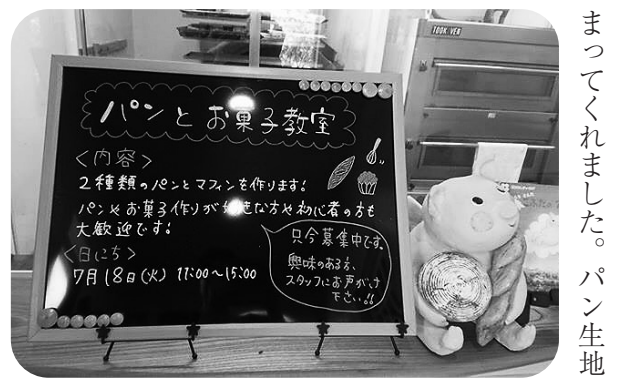 パンとお菓子教室
<内容>
2種類のパンとマフィンを作ります!
パンやお菓子作りが好きな方や初心者の方も
大歓迎です!
<日にち>
7月18日(火) 11:00〜15:00
只今募集中です。
興味のある方、
スタッフにお声がけ
下さい!!
TOOK VER
まってくれました。パン生地